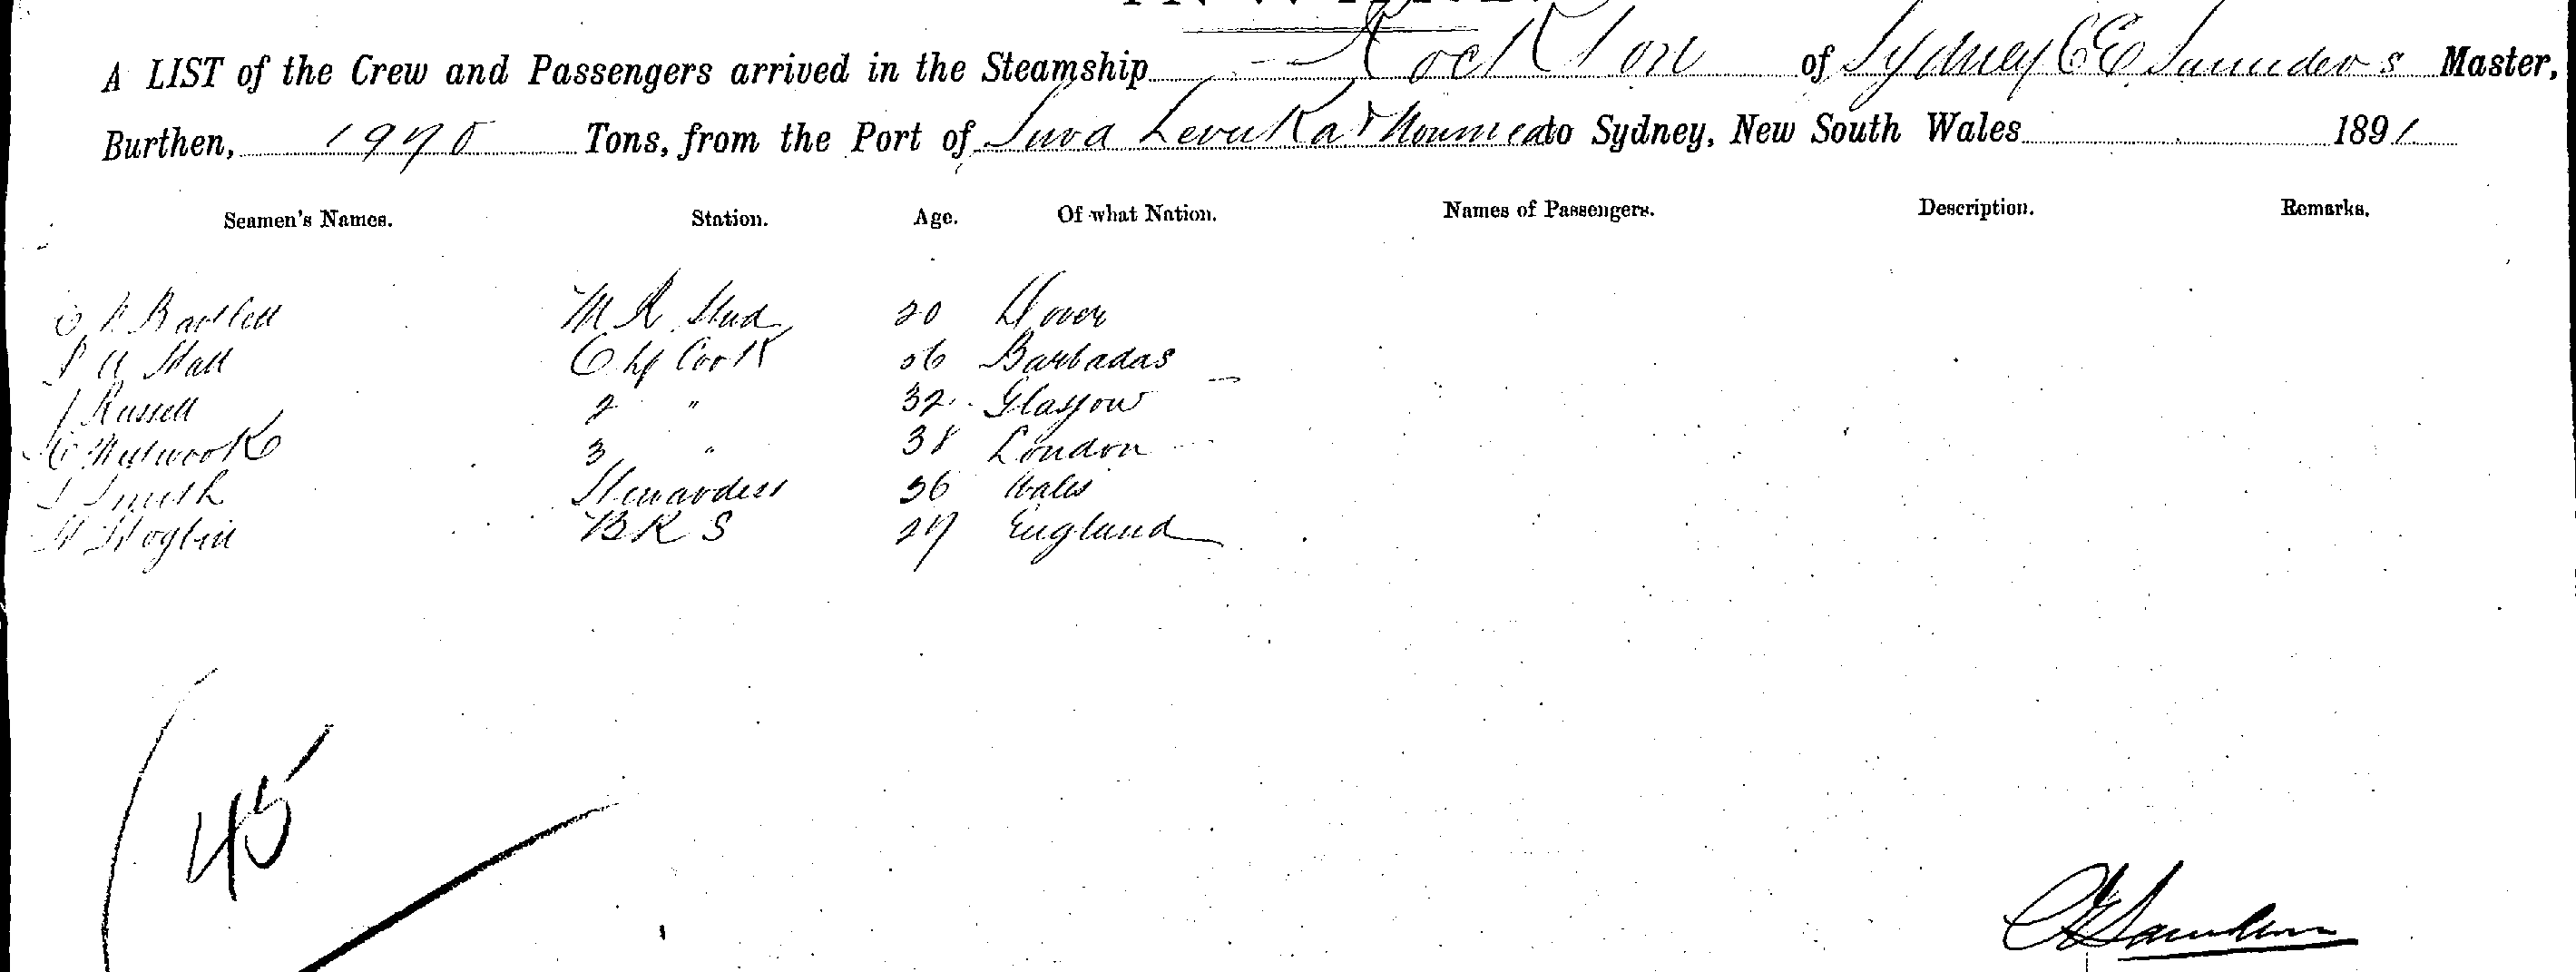 A LIST of the Crew and Passengers arrived in the Steamship Rockton of Sydney C E Saunders Master,
Burthen, 1970 Tons, from the Port of Suva Levuka & Noumea to Sydney, New South Wales 1891
Seamen's Names. Station. Age. Of what Nation. Names of Passengers. Description. Remarks.
Bartlett M R Stud 20 Dover
S A Hall Chf Cook 56 Barbadas
J Russell 2 " 32 Glasgow
C 3 " 38 London
S Smith Stewardess 36 Wales
H Hoglin B R S 27 England
45
C E Saunders